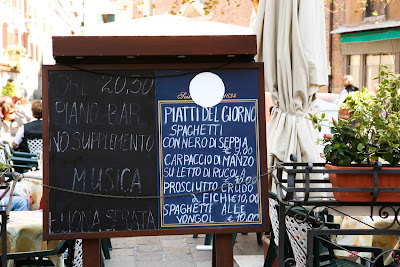 DAL 20,30
PIANO BAR
NO SUPPLEMENTO
MUSICA
BUONA SERATA
1631
PIATTI DEL GIORNO
SPAGHETTI
CON NERO DI SEPPIA
€ 9,00
CARPACCIO DI MANZO
SU LETTO DI RUCOLA
PROSCIUTTO CRUDO
E FICHI € 10,00
SPAGHETTI ALLE
VONGOL € 10,00